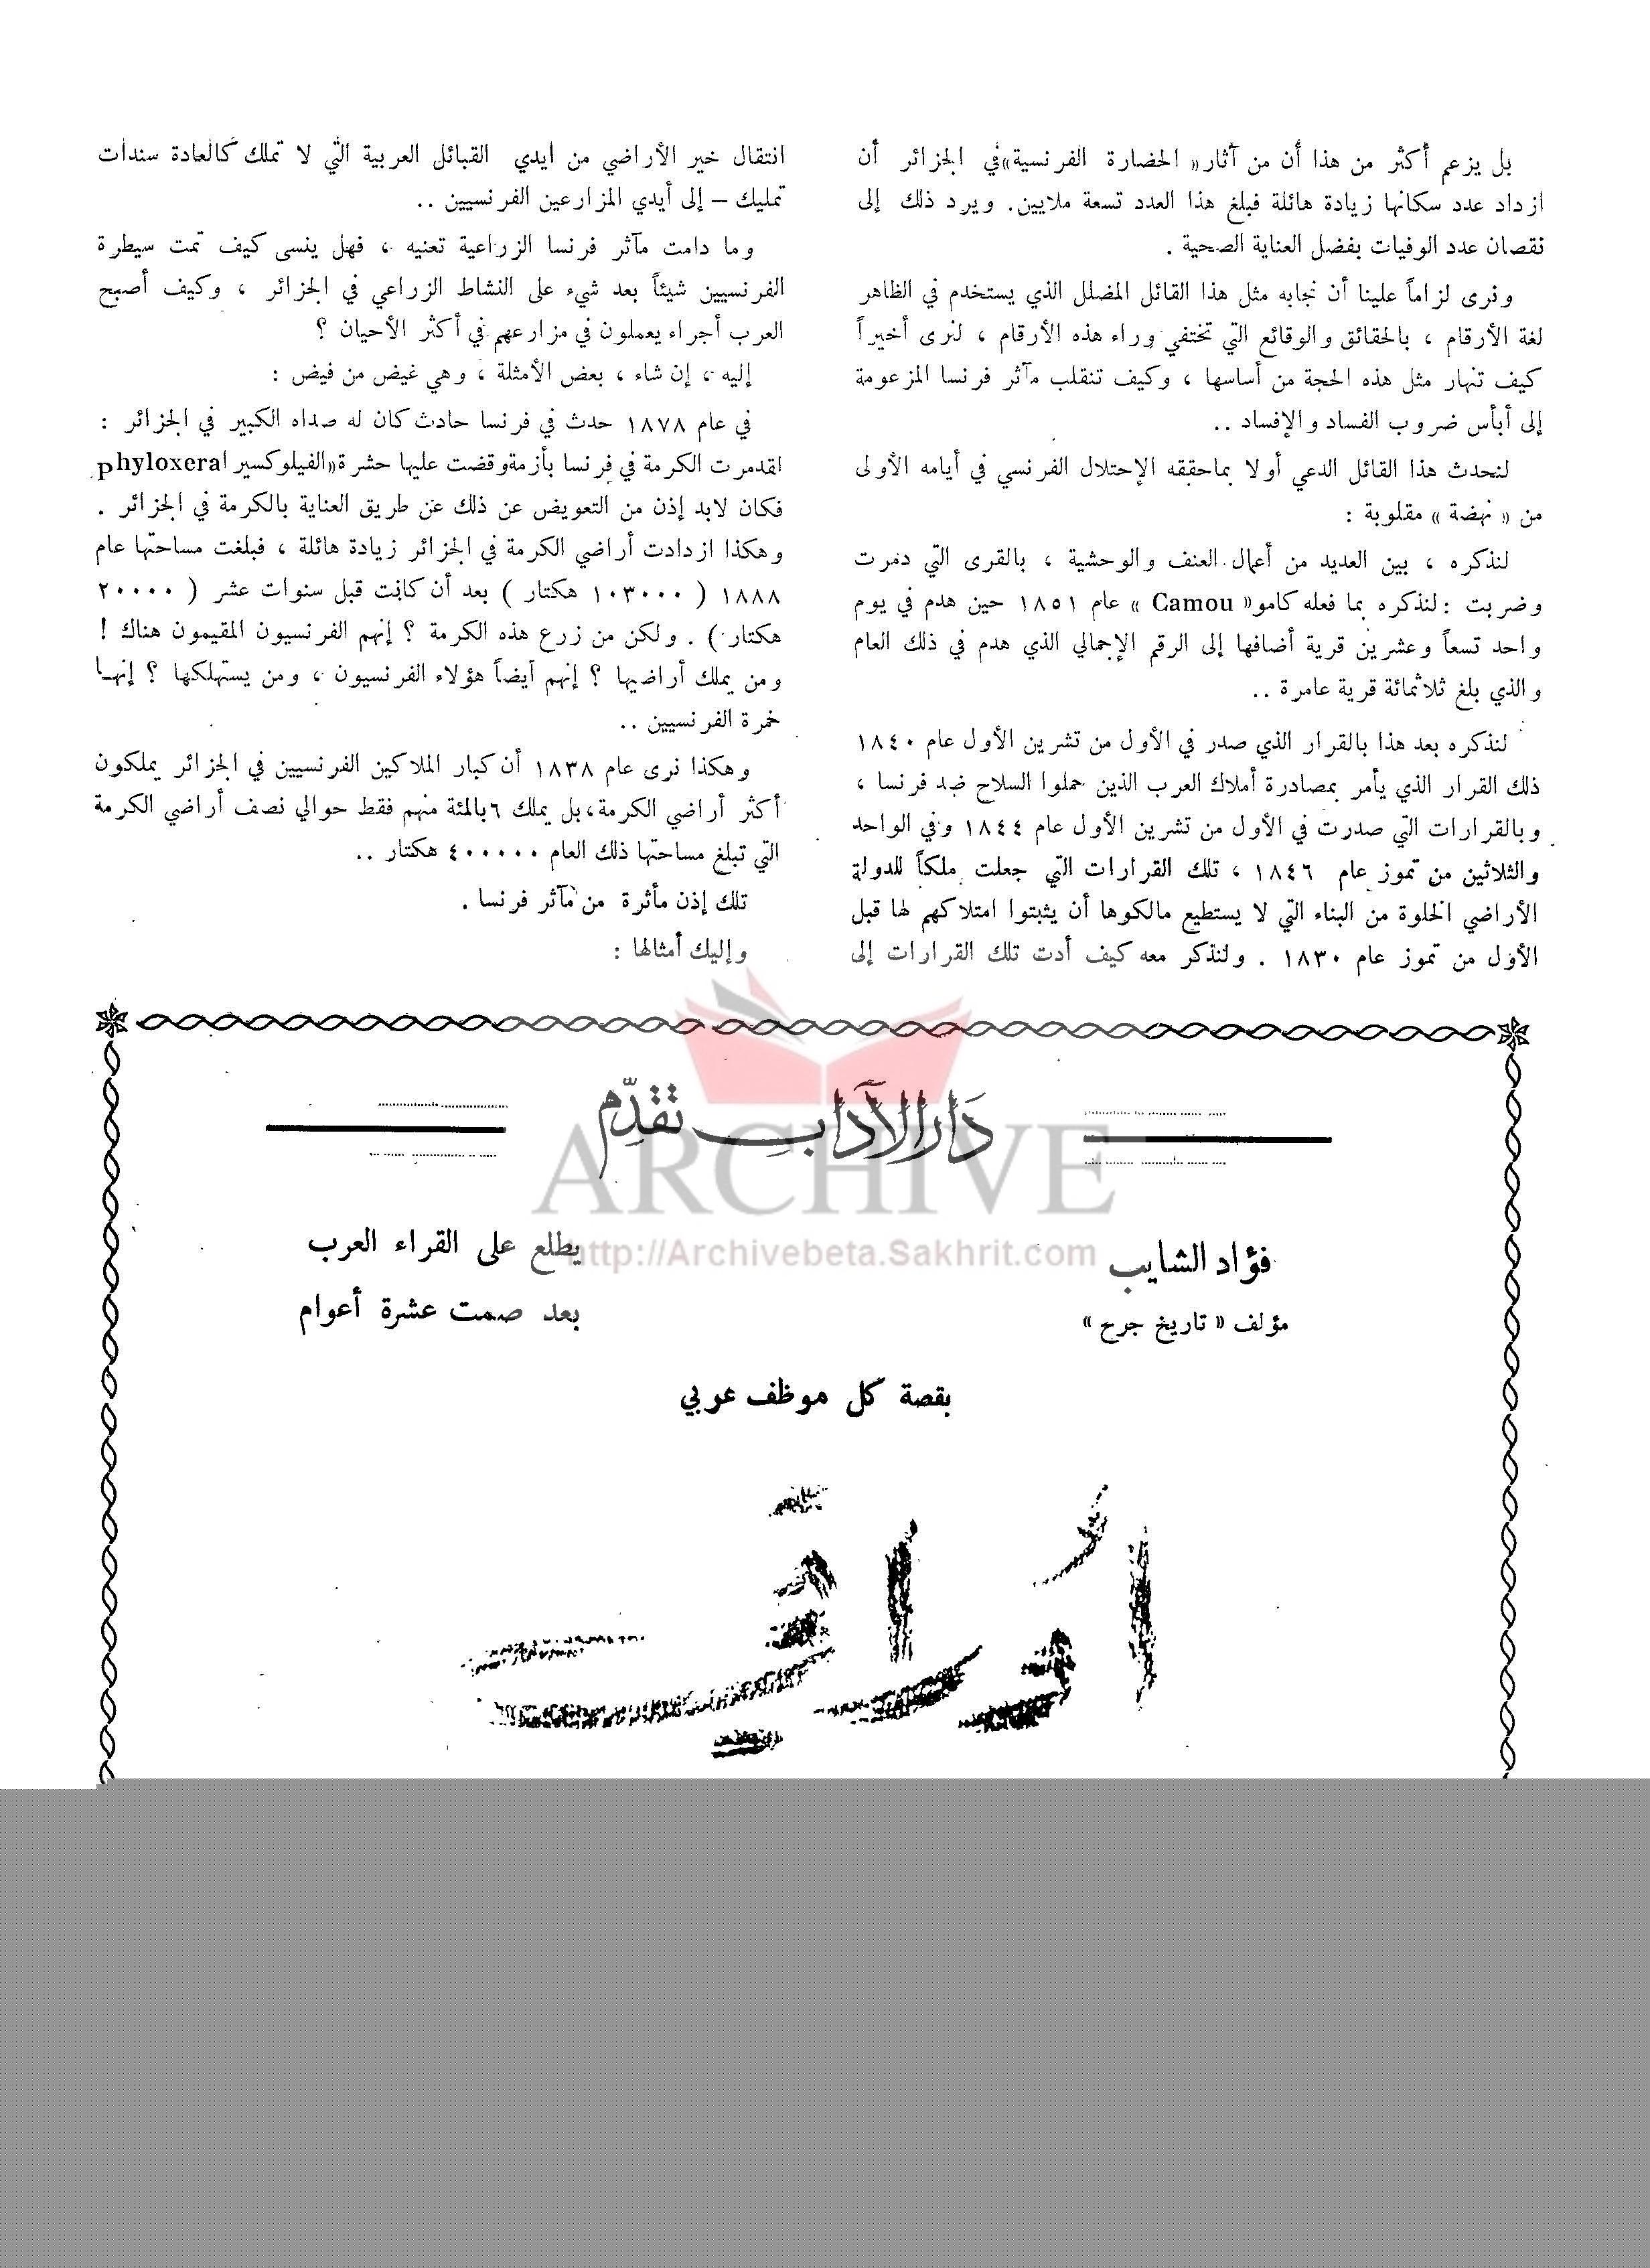 بل يزعم أكثر من هذا أن من آثار « الحضارة الفرنسية » في الجزائر أن
ازداد عدد سكانها زيادة هائلة فبلغ هذا العدد تسعة ملايين. ويرد ذلك إلى
نقصان عدد الوفيات بفضل العناية الصحية .
ونرى لزاماً علينا أن نجابه مثل هذا القائل المضلل الذي يستخدم في الظاهر
لغة الأرقام ، بالحقائق والوقائع التي تختفي وراء هذه الأرقام ، لنرى أخيراً
كيف تنهار مثل هذه الحجة من أساسها ، وكيف تنقلب مآثر فرنسا المزعومة
إلى أبأس ضروب الفساد والإفساد ..
لنحدث هذا القائل الدعي أولا بما حققه الإحتلال الفرنسي في أيامه الأولى
من « نهضة » مقلوبة :
لنذكره ، بين العديد من أعمال العنف والوحشية ، بالقرى التي دمرت
وضربت : لنذكره بما فعله كامو « Camou » عام ١٨٥١ حين هدم في يوم
واحد تسعاً وعشرين قرية أضافها إلى الرقم الإجمالي الذي هدم في ذلك العام
والذي بلغ ثلاثمائة قرية عامرة ..
لنذكره بعد هذا بالقرار الذي صدر في الأول من تشرين الأول عام ١٨٤٠
ذلك القرار الذي يأمر بمصادرة أملاك العرب الذين حملوا السلاح ضد فرنسا ،
وبالقرارات التي صدرت في الأول من تشرين الأول عام ١٨٤٤ وفي الواحد
والثلاثين من تموز عام ١٨٤٦ ، تلك القرارات التي جعلت ملكاً للدولة
الأراضي الخلوة من البناء التي لا يستطيع مالكوها أن يثبتوا امتلاكهم لها قبل
الأول من تموز عام ١٨٣٠ . ولنذكر معه كيف أدت تلك القرارات إلى
انتقال خير الأراضي من أيدي القبائل العربية التي لا تملك كالعادة سندات
تمليك – إلى أيدي المزارعين الفرنسيين ..
وما دامت مآثر فرنسا الزراعية تعنيه ، فهل ينسى كيف تمت سيطرة
الفرنسيين شيئاً بعد شيء على النشاط الزراعي في الجزائر ، وكيف أصبح
العرب أجراء يعملون في مزارعهم في أكثر الأحيان ؟
إليه ، إن شاء ، بعض الأمثلة ، وهي غيض من فيض :
في عام ١٨٧٨ حدث في فرنسا حادث كان له صداه الكبير في الجزائر :
لقد مرت الكرمة في فرنسا بأزمة وقضت عليها حشرة « الفيلوكسيرا phyloxera
فكان لابد إذن من التعويض عن ذلك عن طريق العناية بالكرمة في الجزائر .
وهكذا ازدادت أراضي الكرمة في الجزائر زيادة هائلة ، فبلغت مساحتها عام
١٨٨٨ ( ١٠٣٠٠٠ هكتار ) بعد أن كانت قبل سنوات عشر ( ٢٠٠٠٠
هكتار ) . ولكن من زرع هذه الكرمة ؟ إنهم الفرنسيون المقيمون هناك !
ومن يملك أراضيها ؟ إنهم أيضاً هؤلاء الفرنسيون ، ومن يستهلكها ؟ إنها
خمرة الفرنسيين ..
وهكذا نرى عام ١٨٣٨ أن كبار الملاكين الفرنسيين في الجزائر يملكون
أكثر أراضي الكرمة، بل يملك ٦ بالمئة منهم فقط حوالي نصف أراضي الكرمة
التي تبلغ مساحتها ذلك العام ٤٠٠٠٠٠ هكتار ..
تلك إذن مأثرة من مآثر فرنسا .
وإليك أمثالها :
دار الآداب تقدم
ARCHIVE
http://Archivebeta.Sakhrit.com
فؤاد الشايب
مؤلف « تاريخ جرح »
يطلع على القراء العرب
بعد صمت عشرة أعوام
بقصة كل موظف عربي